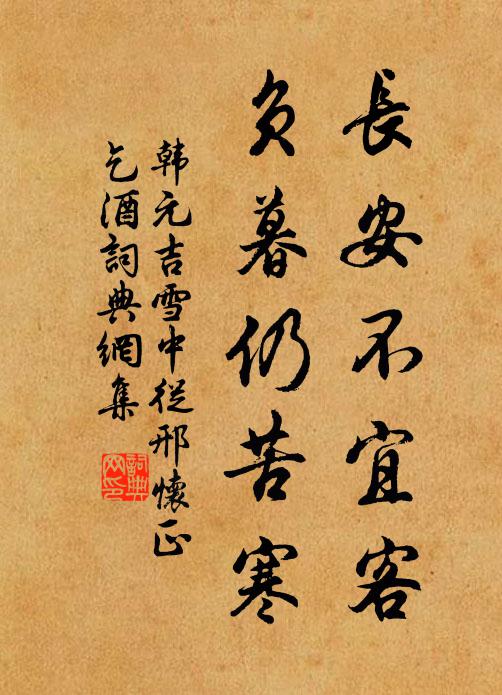 長安不宜客
歲暮仍苦寒
韩元吉雪中從邢懷正
乞酒詞典網集
詞典
网印